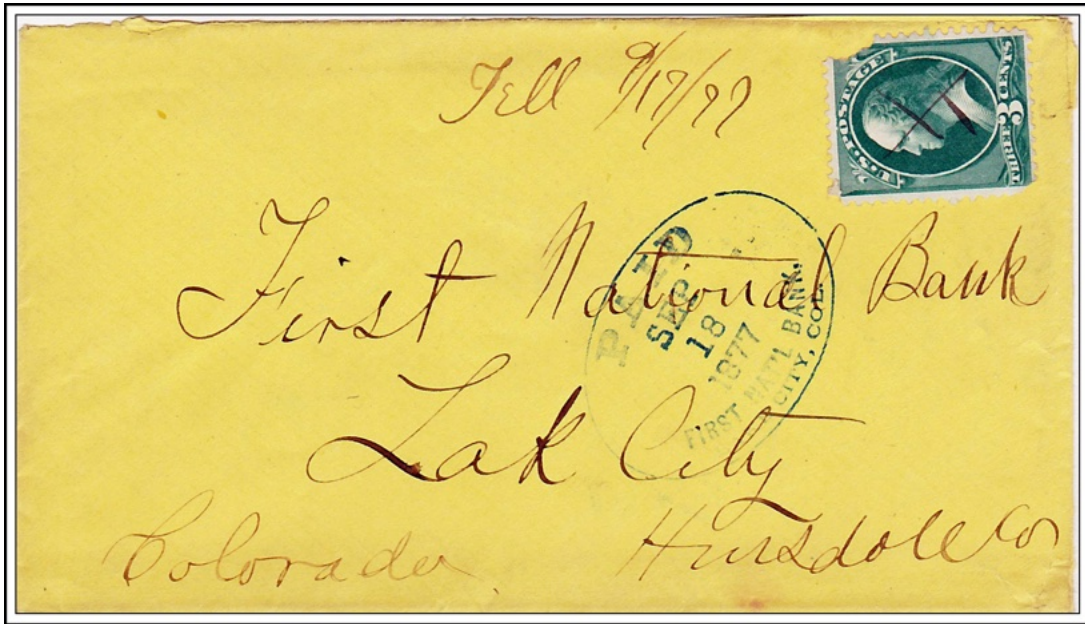 Tell 9/17/77
U.S. POSTAGE
3
THREE CENTS
First National Bank
PAID
SEP
18
1877
FIRST NAT'L BANK.
CITY, COL.
Lak City
Colorado Hinsdale Co